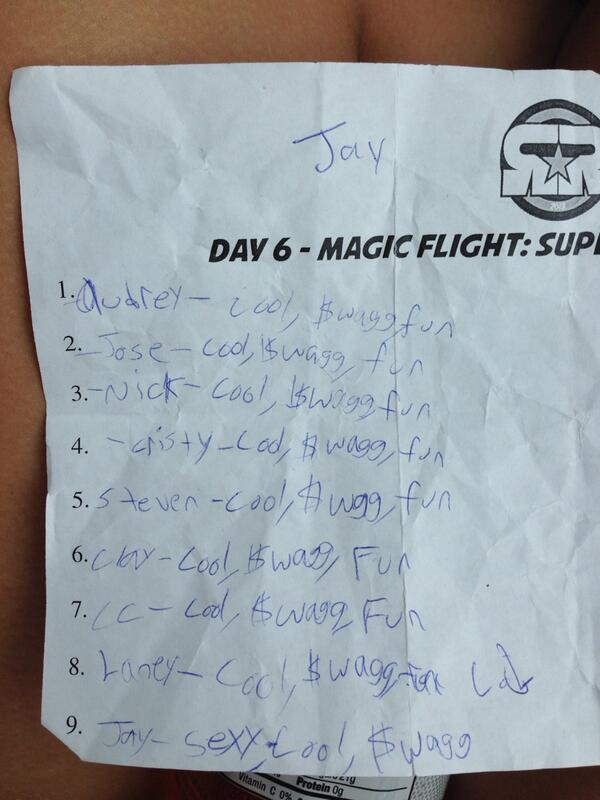 Jay
SRS
DAY 6 - MAGIC FLIGHT: SUP
1. Audrey - Cool, $wagg, fun
2. - Jose - Cool, $wagg, fun
3. - Nick - Cool, $wagg, fun
4. - Cristy - Cool, $wagg, fun
5. Steven - Cool, $wgg, fun
6. Clay - Cool, $wagg, Fun
7. CC - Cool, $wagg, Fun
8. Laney - Cool, $wagg,
9. Jay - Sexy, Cool, $wagg
Protein 0g
Vitamin C 0%